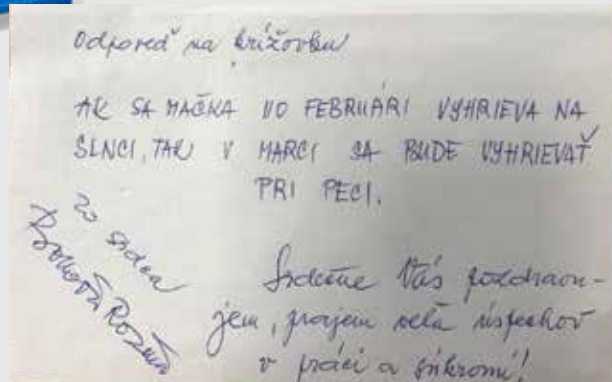 Odpoveď na krížovku
AK SA MAČKA VO FEBRUÁRI VYHRIEVA NA
SLNCI, TAK V MARCI SA BUDE VYHRIEVAŤ
PRI PECI.
Srdečne Vás pozdravu-
jem, prajem veľa úspechov
v práci a súkromí!
zo srdca